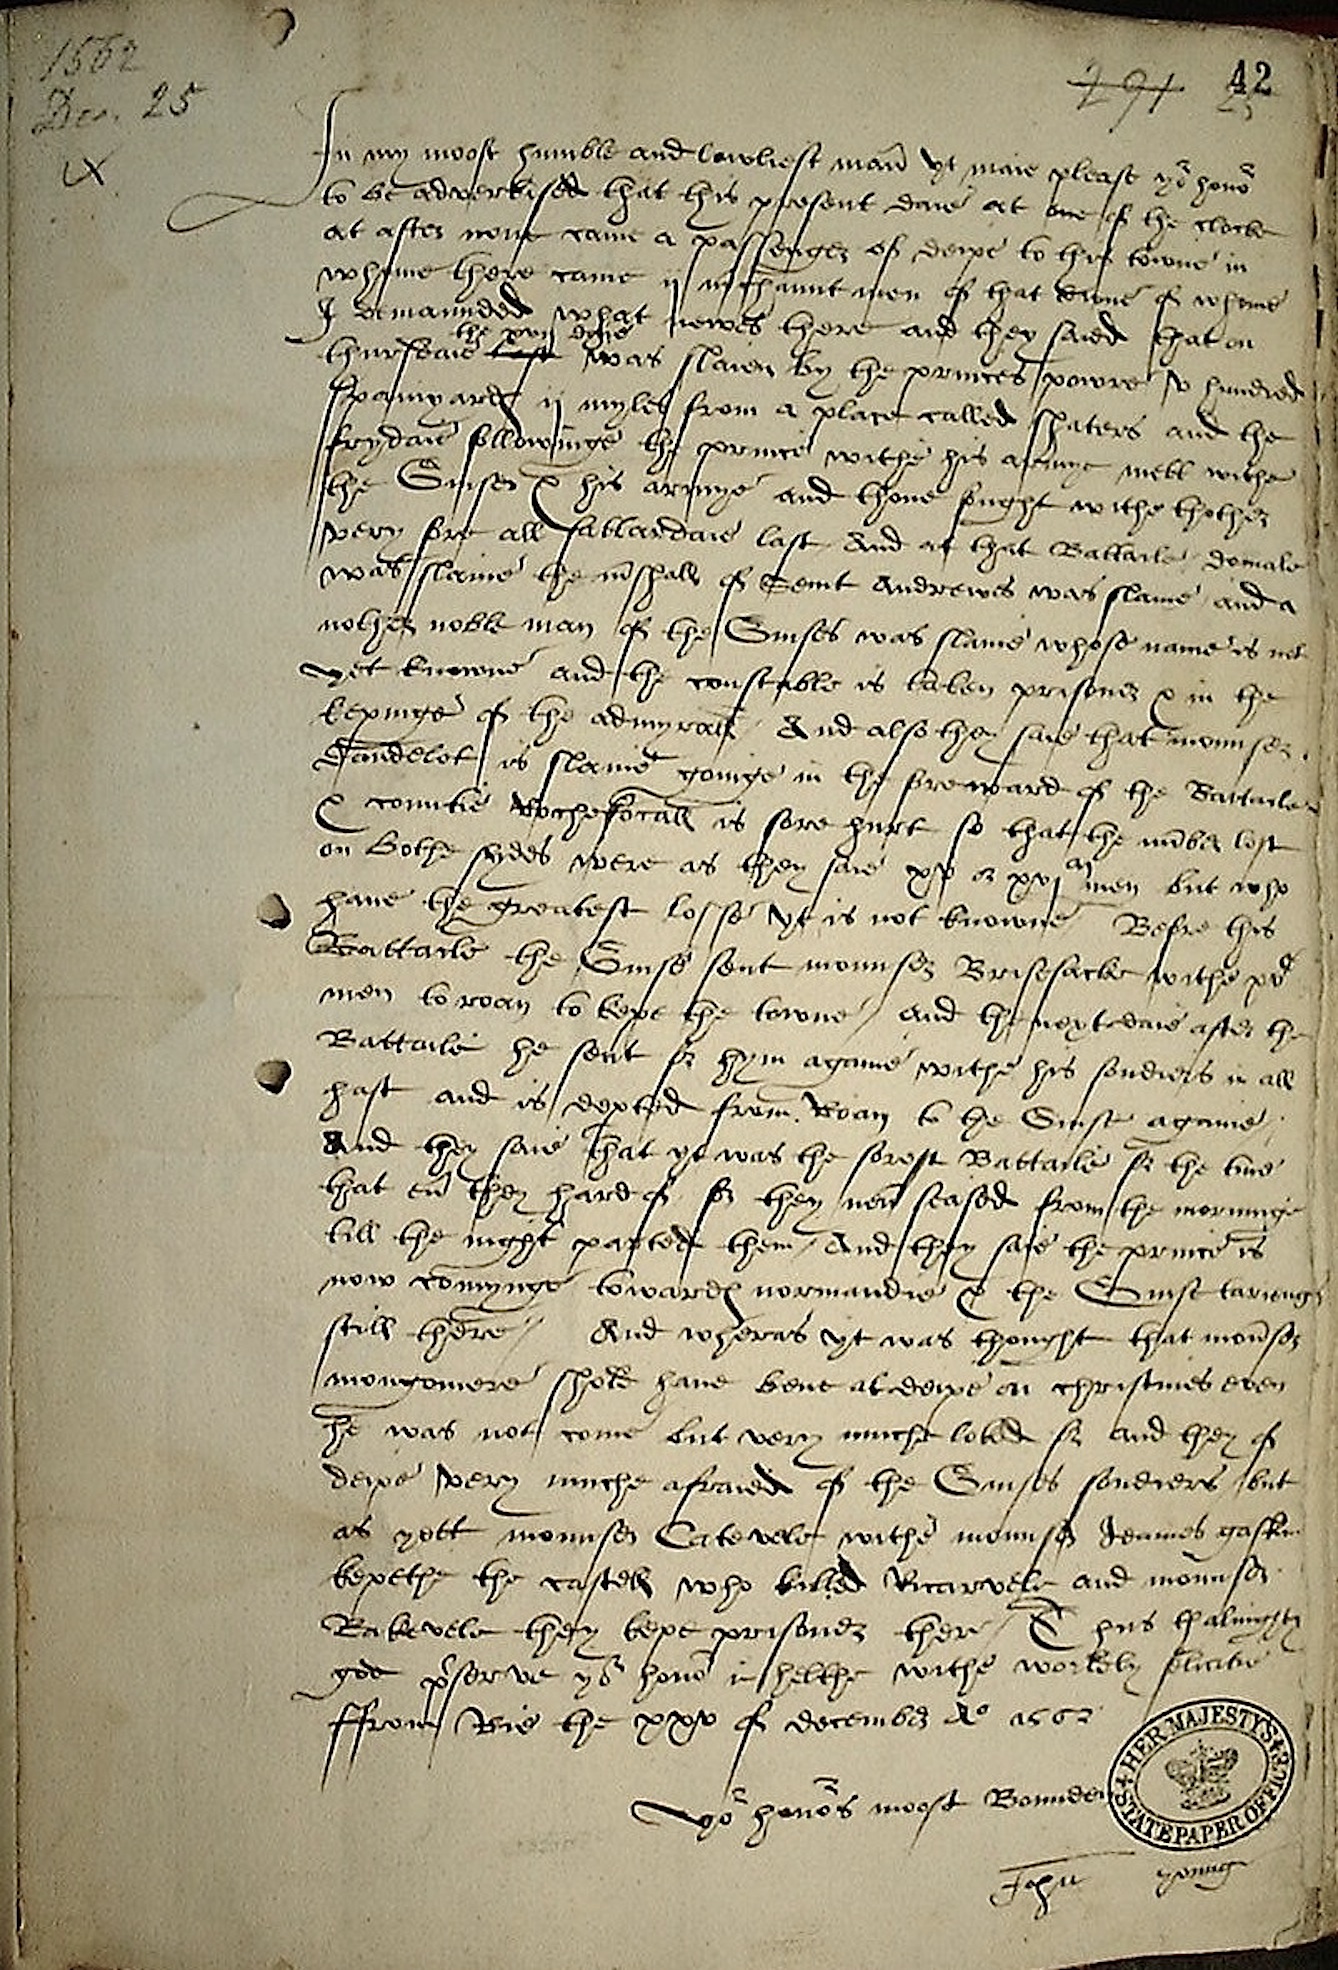 1562
Dec. 25
291 42
In my moost humble and lowliest man̄ yt maie please yor honor
to be advertised that this present daie at one of the clocke
at after none came a passenger of deipe to this towne in
whome there came ij m̄chaunt men of that towne of whome
I demaunded what newes there and they saied that on
the xvij daie
thursdaie last was slaien by the princes powre v hundred
Spainyards ij myles from a place called shaters and the
frydaie followinge the prince withe his armye mett withe
the Guise & his armye and thone fught withe thother
very sore all sattardaie last And at that Battaile domale
was slaine the m̄shall of Seint Andrewes was slaine and a
nother noble man of the Guises was slaine whose name is not
yet knowne and the constable is taken prisoner & in the
kepinge of the admyrall / And also they saie that mounser
Dandelot is slaine goinge in the foreward of the Battaile
& countie Rochefocall is sore hurt so that the nūber lost
on bothe sydes were as they saie xv or xvj m men but who
have the greatest losse yt is not knowne / Before this
Battaile the Guise sent mounser Brisesacke withe xvc
men to roan to kepe the towne / And the next daie after the
Battaile he sent for hym againe withe his soudiers in all
hast and is depted from Roan to the Guise againe /
And they saie that yt was the sorest Battaile for the time
that eū they hard of for they neū seased from the morninge
till the night parted them / And they saie the prince is
now comynge towards normandie & the Guise tarieng
still there / And wheras yt was thought that moūser
mongomere shold have bene at deipe on christmes even
he was not come but very muche loked for and they of
deipe very muche afraied of the Guises soudiers but
as yett mounser Catevele withe mounser Jeames gaskin
kepethe the castell who killed Ricarvele and mounser
Bakevele they kepe prisoner there / Thus thalmighty
god pserve yor honor in helthe withe workely felicitie
ffrom Rie the xxv of december Ao 1562
Yor honors moost Bounden
John Yonng
HER MAJESTY'S STATE PAPER OFFICE